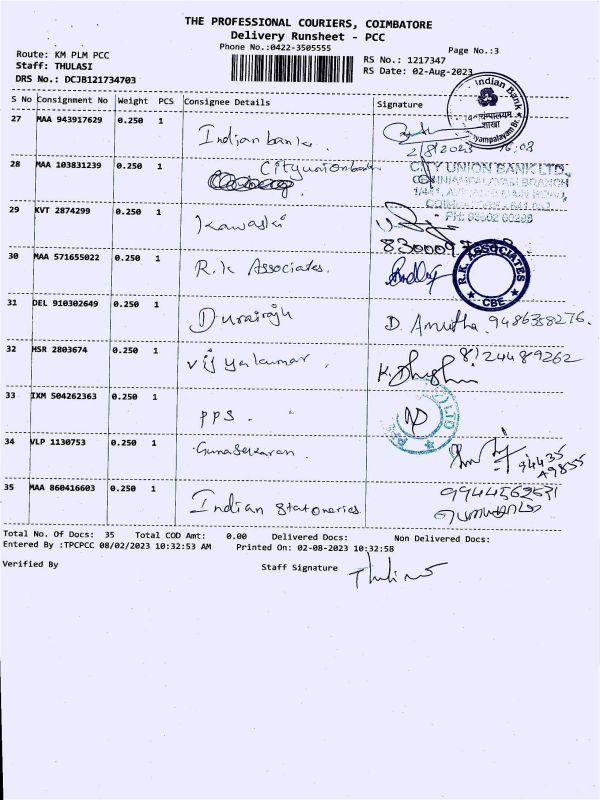 THE PROFESSIONAL COURIERS, COIMBATORE
Delivery Runsheet - PCC
Phone No.:0422-3505555
Page No.:3
Route: KM PLM PCC
Staff: THULASI
DRS No.: DCJB121734703
RS No.: 1217347
RS Date: 02-Aug-2023
S No Consignment No Weight PCS Consignee Details Signature
27 MAA 943917629 0.250 1 Indian bank. 2/8/2023 16:08
Indian Bank
शाखा
28 MAA 103831239 0.250 1 City union bank
CITY UNION BANK LTD.,
29 KVT 2874299 0.250 1 Kawaski
30 MAA 571655022 0.250 1 R.K Associates.
R.K. ASSOCIATES
CBE
31 DEL 910302649 0.250 1 Durairaju D. Amutha. 9486358276.
32 HSR 2803674 0.250 1 vijyakumar. 8124489262
33 IXM 504262363 0.250 1 PPS.
34 VLP 1130753 0.250 1 Gunasekaran. 94435
35 MAA 860416603 0.250 1 Indian stationeries. 9944562531
Total No. Of Docs: 35 Total COD Amt: 0.00 Delivered Docs: Non Delivered Docs:
Entered By :TPCPCC 08/02/2023 10:32:53 AM Printed On: 02-08-2023 10:32:58
Verified By Staff Signature